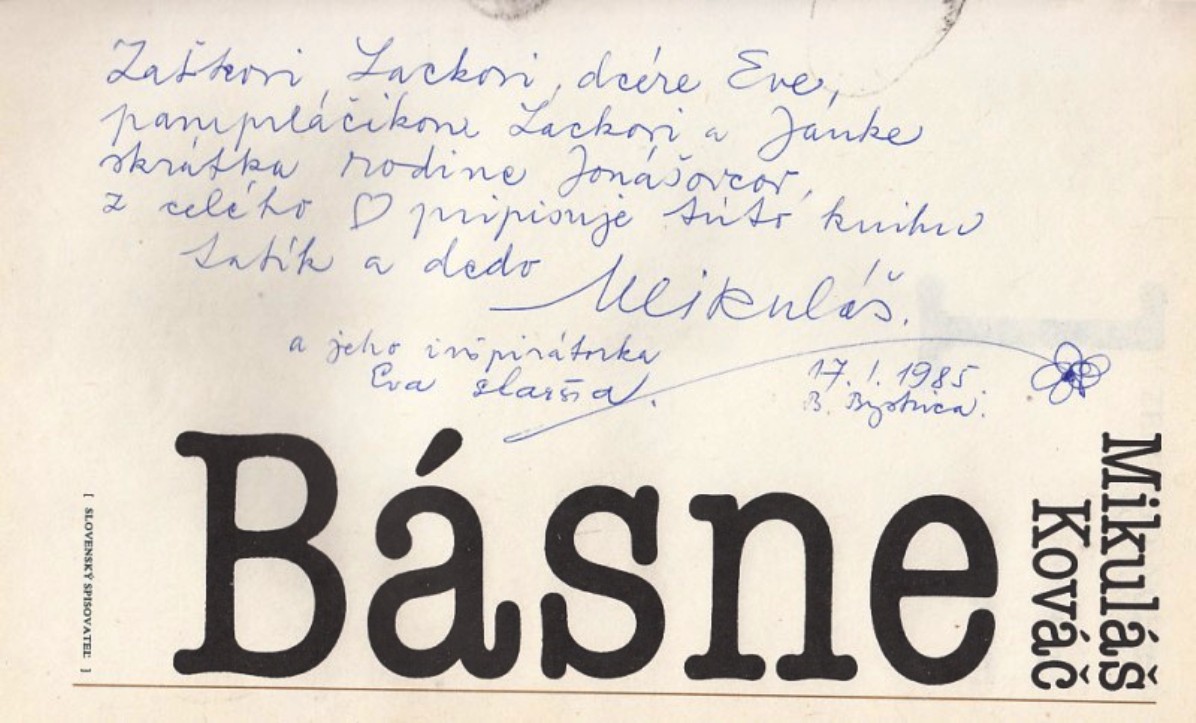 Zaťkovi Lackovi, dcére Eve,
pampuláčikom Lackovi a Janke
skrátka rodine Jonášovcov,
z celého ♡ pripisuje túto knihu
tatík a dedo Mikuláš.
a jeho inšpirátorka
Eva staršia.
17. I. 1985
B. Bystrica.
Básne
Mikuláš
Kováč
[ SLOVENSKÝ SPISOVATEĽ ]